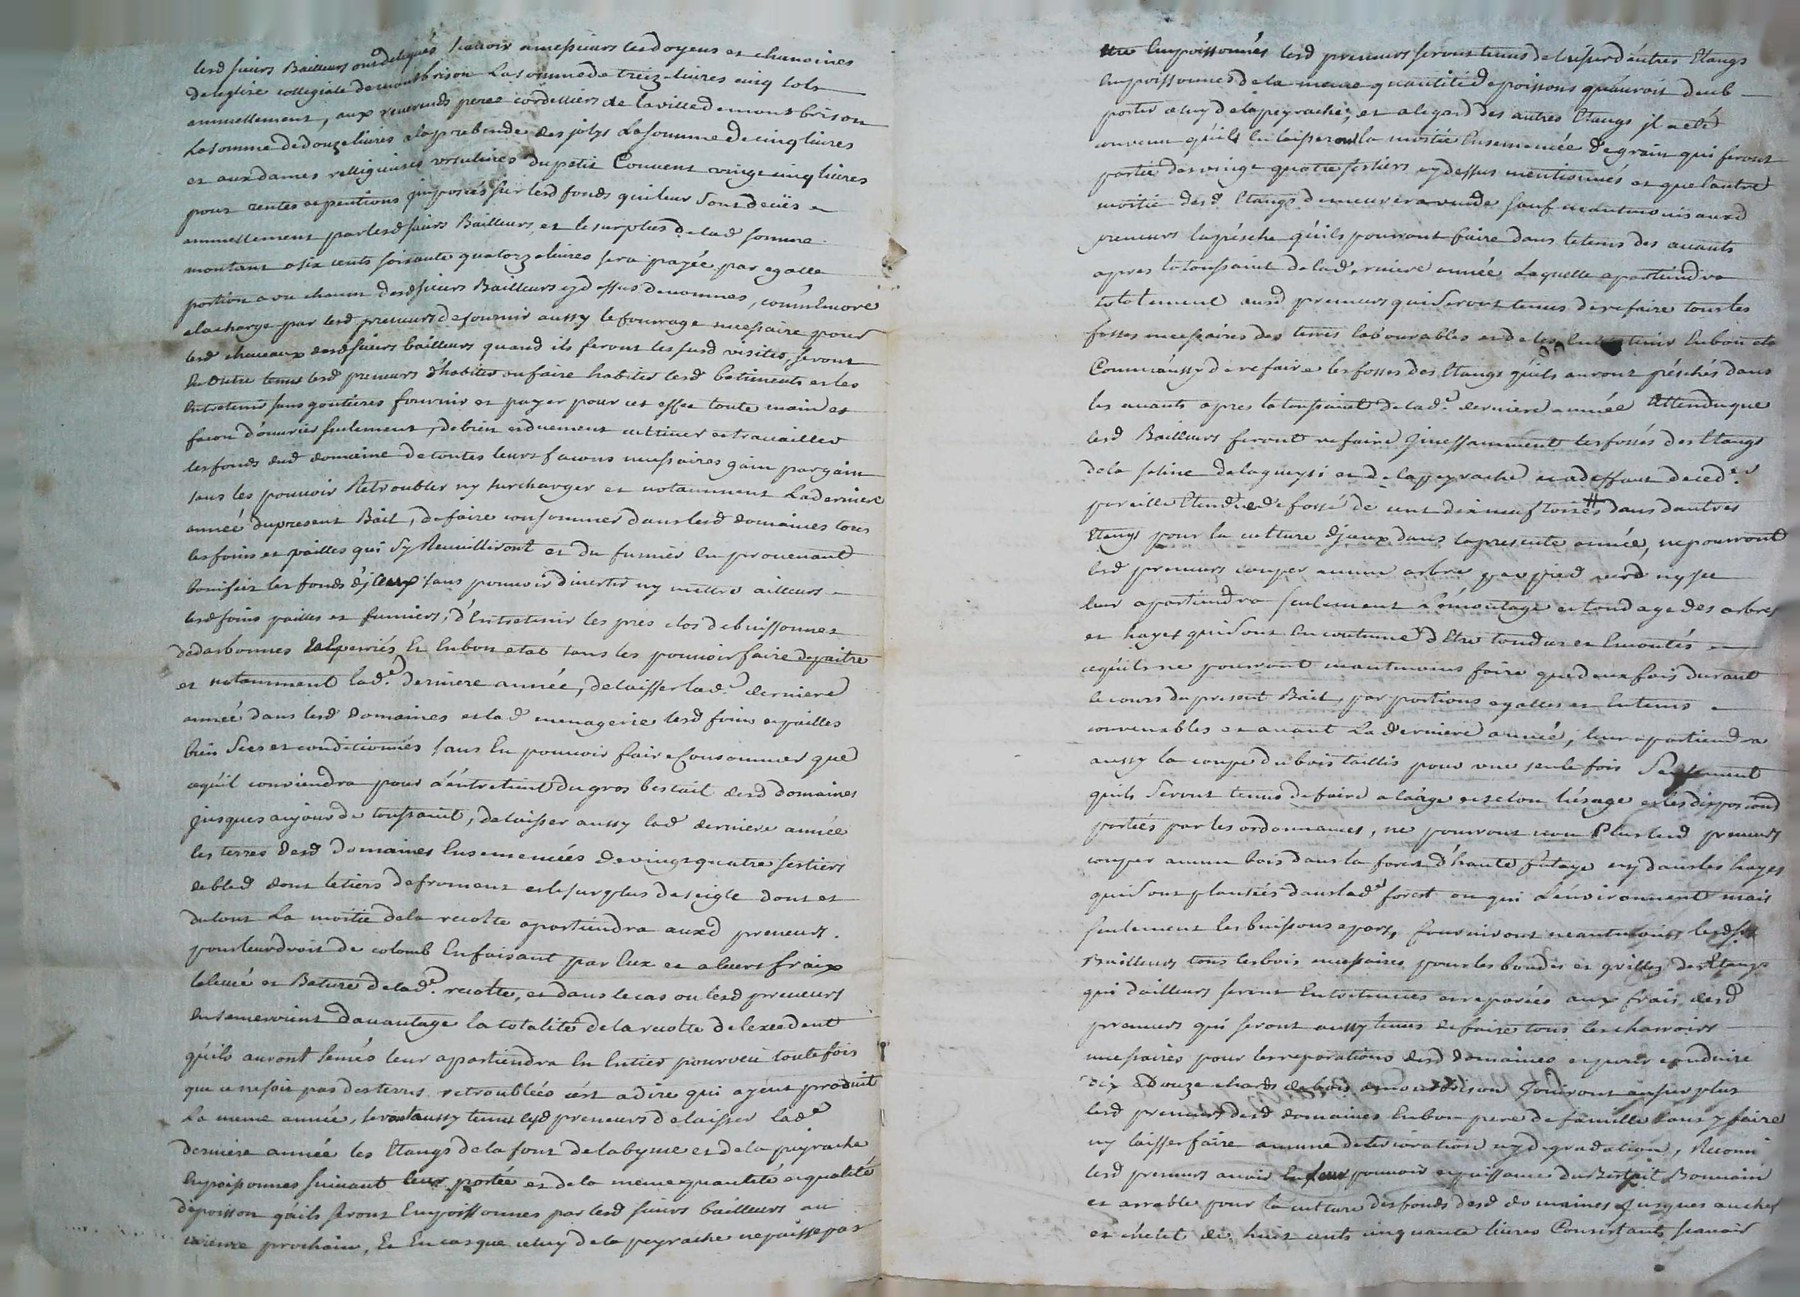 lesd sieurs Bailleurs ont delegués scauoir a messieurs les doyens et chanoines
de leglise collegiale de montbrison La somme de treize liures cinq sols
annuellement, aux reuerends peres cordelliers de la ville de montbrison
La somme de douze liures a la prebende des jolys La somme de cinq liures
et aux dames relligieuses vrsulines du petit Couuent vingt cinq liures
pour rentes et pentions imposées sur lesd fonds qui leur sont deües
annuellement par lesd sieurs Bailleurs, et le surplus de lad somme
montant a six cents soixante quatorze liures sera payée par egalle
portion a vn chacun desd sieurs Bailleurs cydessus denommes, comm'encore
a la charge par lesd preneurs de fournir aussy le fourrage necessaire pour
les cheuaux desd sieurs bailleurs quand ils feront les susd visites, seront
en outre tenus lesd preneurs d'habiter ou faire habiter lesd bâtiments et les
entretenir sans goutieres fournir et payer pour cet effet toute main et
facon d'ouurier seulement, de bien et duement cultiuer et trauailler
les fonds dud domaine de toutes leurs facons necessaires gain par gain
sans les pouuoir Retroubler ny surcharger et notamment La derniere
année du present Bail, de faire consommer dans lesd domaines tous
les foins et pailles qui s'y Recuilliront et du fumier en prouenant
bonifier les fonds d'jceux sans pouuoir diuertir ny mettre ailleurs
lesd foins pailles et fumiers, d'Entretenir les prés clos de buissonnes
desarbonnes Esepierrés Et En bon etat sans les pouuoir faire depaitre
et notamment lad.e derniere année, de laisser lad.e derniere
année dans lesd domaines et lad menagerie lesd foins et pailles
bien secs et conditionnés sans En pouuoir faire Consommer que
ce qu'il conuiendra pour l'entretient du gros bestail desd domaines
jusques au jour de toussaint, de laisser aussy lad derniere année
les terres desd domaines Ensemencées de vingt quatre sestiers
de bled dont le tiers de froment et le surplus de seigle dont et
du tout La moitié de la recolte apartiendra auxd preneurs
pour leur droit de colomb En faisant par Eux et a leurs fraix
la leuée et Bature de lad.e recolte, et dans le cas ou lesd preneurs
ensemenceroient dauantage la totalité de la recolte de lexcedent
qu'ils auront semés leur apartiendra En Entier pourveu toutefois
que ce ne soit pas des terres retroublées c'est a dire qui ayent produit
La meme année, seront aussy tenus lesd preneurs de laisser lad.e
derniere année les Etangs de la font de labyme et de la peyrache
Empoissonnes suiuant leur portée et de la meme quantité et qualité
de poisson qu'ils seront Empoissonnes par lesd sieurs bailleurs au
careme prochain, Et En cas que celuy de la peyrache ne puisse pas
etre Empoissonnés lesd preneurs seront tenus de laisser d'autres Etangs
Empoissonnes de la meme quantité de poissons qu'auroit deub
porter celuy de la peyrache, et a legard des autres Etangs jl a eté
conuenu qu'ils En laisseront la moitié Ensemencée de grain qui feront
partie des vingt quatre sestiers cydessus mentionnés et que l'autre
moitié desd. Etangs demeurera vuide sauf neantmoins auxd
preneurs la pêsche qu'ils pourront faire dans le tems des auants
apres la toussaint de lad, erniere année Laquelle apartiendra
totalement ausd preneurs qui seront tenus de refaire tous les
fosses necessaires des terres labourables et de les Entretenir En bon etat
Comm'aussy de refaire les fosses des Etangs qu'ils auront péschés dans
les auants apres la toussaint de lad.e derniere année Attendu que
lesd Bailleurs feront refaire jncessamment les fossés des Etangs
de la saline de la gueysi et de la peyrache et a deffaut de ced.es
pareille Etendue de fossé de cent dix neuf toises # dans d'autres
Etangs pour la culture d'jceux dans la presente année, ne pourront
lesd preneurs couper aucun arbre par pied verd ny sec
leur apartiendra seulement L'émontage et tondage des arbres
et hayes qui sont En coutume d'etre tondus et Emontés
ce qu'ils ne pourront neantmoins faire que deux fois durant
le cours du present Bail, par portions egalles et En tems
conuenables et auant La derniere année, leur apartiendra
aussy la coupe du bois taillis pour vne seule fois Seulement
qu'ils seront tenus de faire a l'arge et selon l'usage et les dispositions
portées par les ordonnances, ne pourront non Plus lesd preneurs
couper aucun bois dans la forest d'haute futaye ny dans les hayes
qui sont plantées dans lad.e forest ou qui L'enuironnent mais
seulement les buissons epars, fourniront neantmoins lesd srs
Bailleurs tous les bois necessaires pour les bondes et grilles des Etangs
qui d'ailleurs seront Entretenues et reparées aux frais desd
preneurs qui seront aussy tenus de faire tous les charrois
necessaires pour les reparations desd domaines et pour conduire
dix a Douze chards de bois a montbrison Jouiront au surplus
lesd preneurs desd domaines En bon pere de famille sans y faire
ny laisser faire aucune deterioration ny degradation, Reconn
lesd preneurs auoir En leur pouuoir et puissance du Bestail Bouuain
et arrable pour la culture des fonds desd domaines Jusques au chef
et chetel de huit cents cinquante liures Consistants scauoir